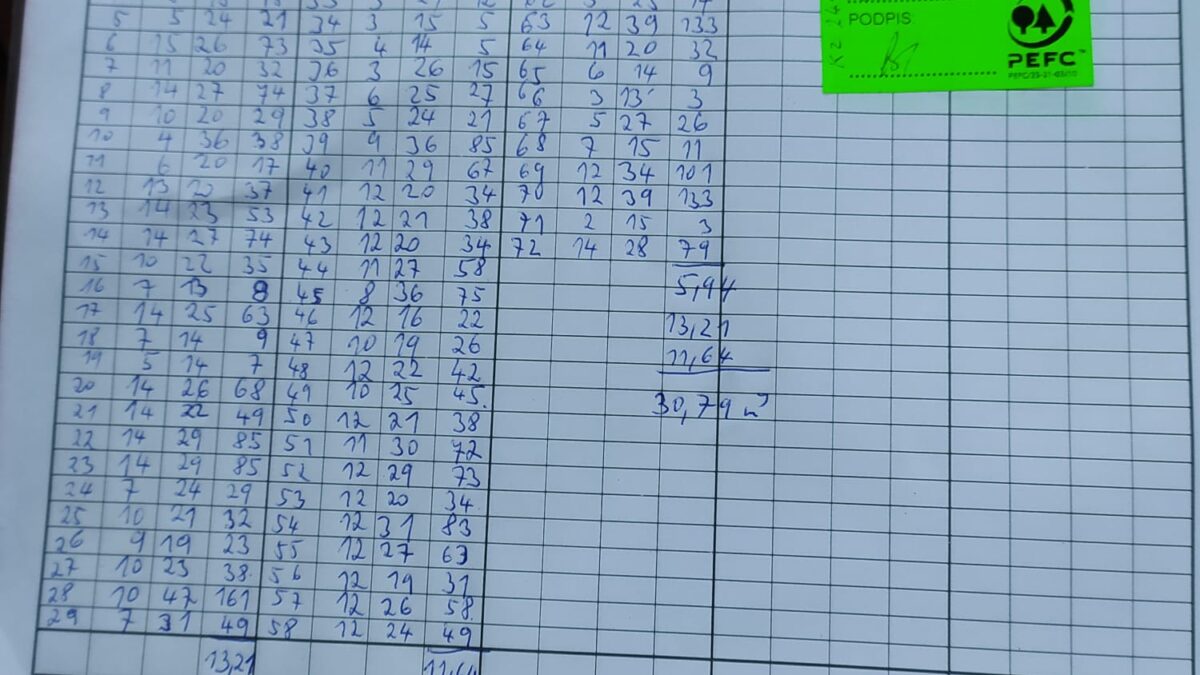 5 5 24 21 34 3 15 5 63 12 39 133
6 15 26 73 35 4 14 5 64 11 20 32
7 11 20 32 36 3 26 15 65 6 14 9
8 14 27 74 37 6 25 27 66 3 13 3
9 10 20 29 38 5 24 21 67 5 27 26
10 4 36 38 39 9 36 85 68 7 15 11
11 6 20 17 40 11 29 67 69 12 34 101
12 13 20 37 41 12 20 34 70 12 39 133
13 14 23 53 42 12 21 38 71 2 15 3
14 14 27 74 43 12 20 34 72 14 28 79
15 10 22 35 44 11 27 58
5,94
16 7 13 8 45 8 36 75
17 14 25 63 46 12 16 22 13,21
18 7 14 9 47 10 19 26 11,64
19 5 14 7 48 12 22 42
20 14 26 68 49 10 25 45 30,79 m³
21 14 22 49 50 12 21 38
22 14 29 85 51 11 30 72
23 14 29 85 52 12 29 73
24 7 24 29 53 12 20 34
25 10 21 32 54 12 31 83
26 9 19 23 55 12 27 63
27 10 23 38 56 12 19 31
28 10 47 161 57 12 26 58
29 7 31 49 58 12 24 49
13,21 11,64
PODPIS:
PEFC™